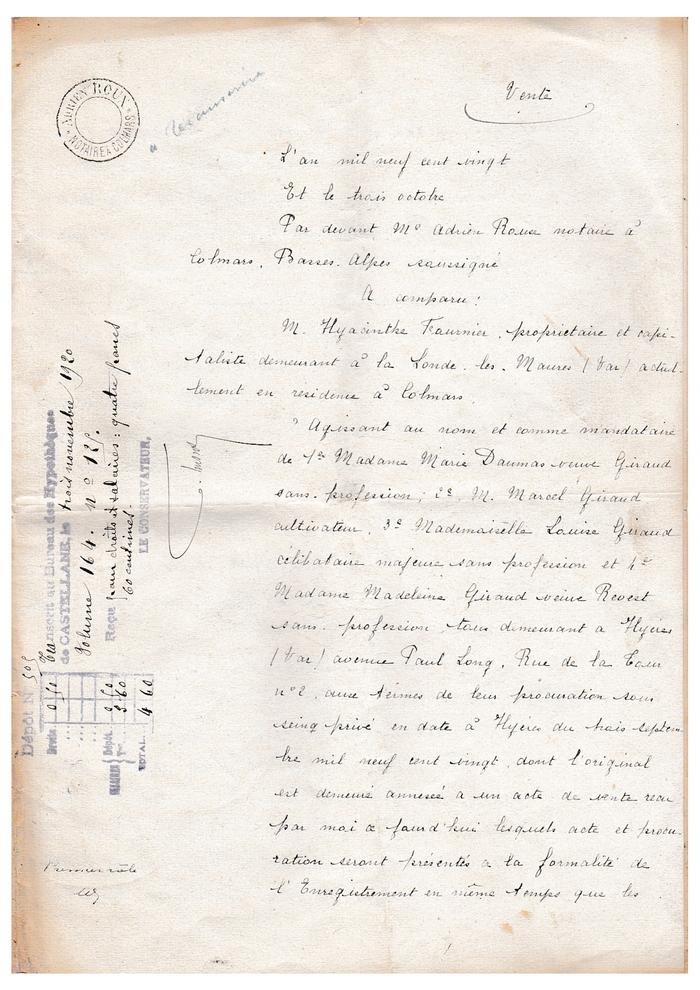 ADRIEN ROUX
NOTAIRE A COLMARS
Vente
L'an mil neuf cent vingt
Et le trois octobre
Par devant Me Adrien Roux notaire à
Colmars, Basses-Alpes soussigné
A comparu :
M. Hyacinthe Fournier, propriétaire et capi-
taliste demeurant à la Londe-les-Maures (Var) actuel-
lement en résidence à Colmars
Agissant au nom et comme mandataire
de 1º Madame Marie Daumas veuve Giraud
sans profession ; 2º, M. Marcel Giraud
cultivateur, 3º Mademoiselle Louise Giraud
célibataire majeure sans profession et 4º
Madame Madeleine Giraud veuve Revest
sans profession, tous demeurant à Hyères
(Var) avenue Paul Long, Rue de la Tour
nº2, aux termes de leur procuration sous
seing privé en date à Hyères du trois septem
bre mil neuf cent vingt, dont l'original
est demeuré annexé à un acte de vente reçu
par moi a jourd'hui lesquels acte et procu-
ration seront présentés à la formalité de
l'Enregistrement en même temps que les
Dépôt N 505
Transcrit au Bureau des Hypothèques
de CASTELLANE, le trois novembre 1920
Volume 164. nº 125.
Reçu pour droits et salaires : quatre francs
60 centimes.
LE CONSERVATEUR,
Droits
SALAIRES
Dépôt 0 50
Tion 3 60
TOTAL. 4 60
Premier rôle